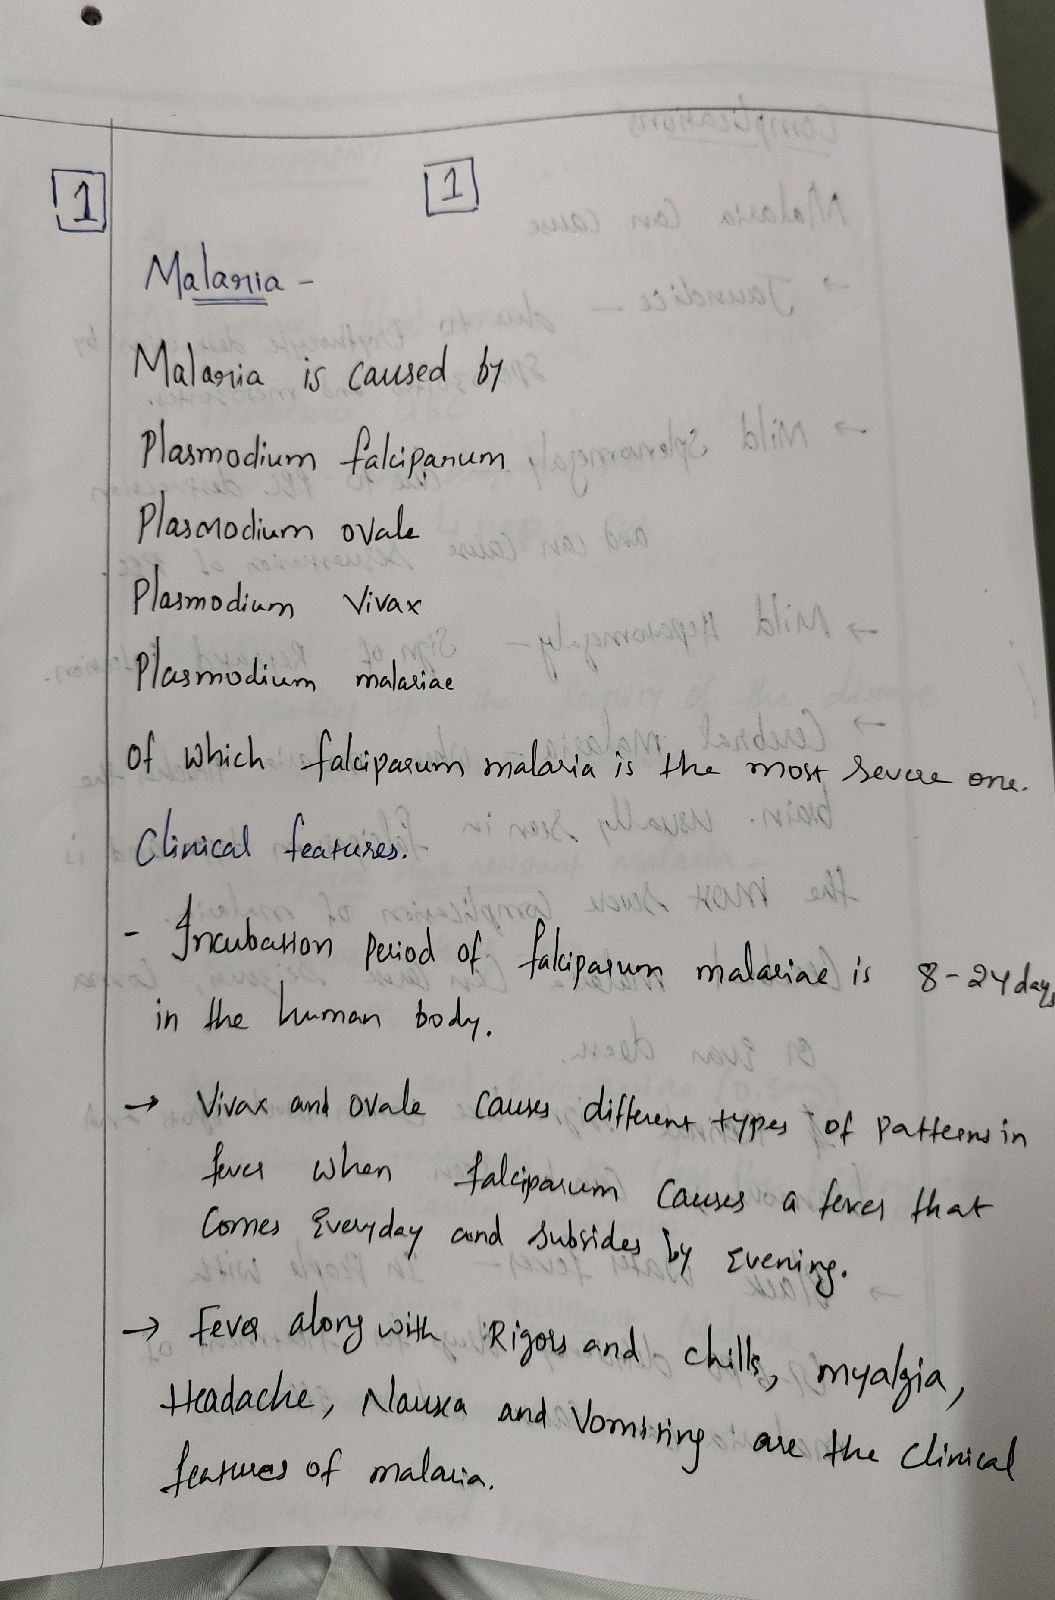 1 1
Malaria -
Malaria is caused by
Plasmodium falciparum
Plasmodium ovale
Plasmodium vivax
Plasmodium malariae
Of which falciparum malaria is the most severe one.
Clinical features.
- Incubation period of falciparum malariae is 8-24 days
in the human body.
→ Vivax and ovale causes different types of patterns in
fever when falciparum causes a fever that
comes everyday and subsides by evening.
→ Fever along with Rigors and chills, myalgia,
Headache, Nausea and Vomiting are the clinical
features of malaria.